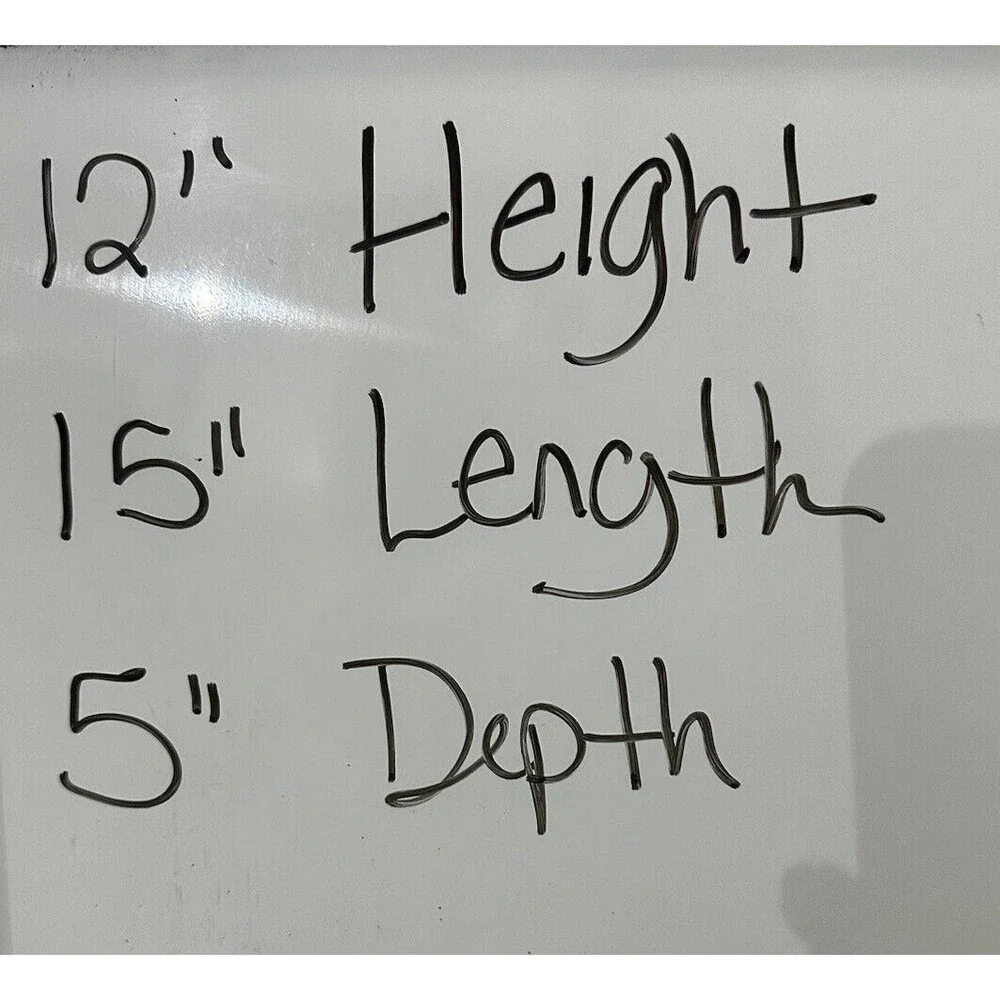 12" Height
15" Length
5" Depth